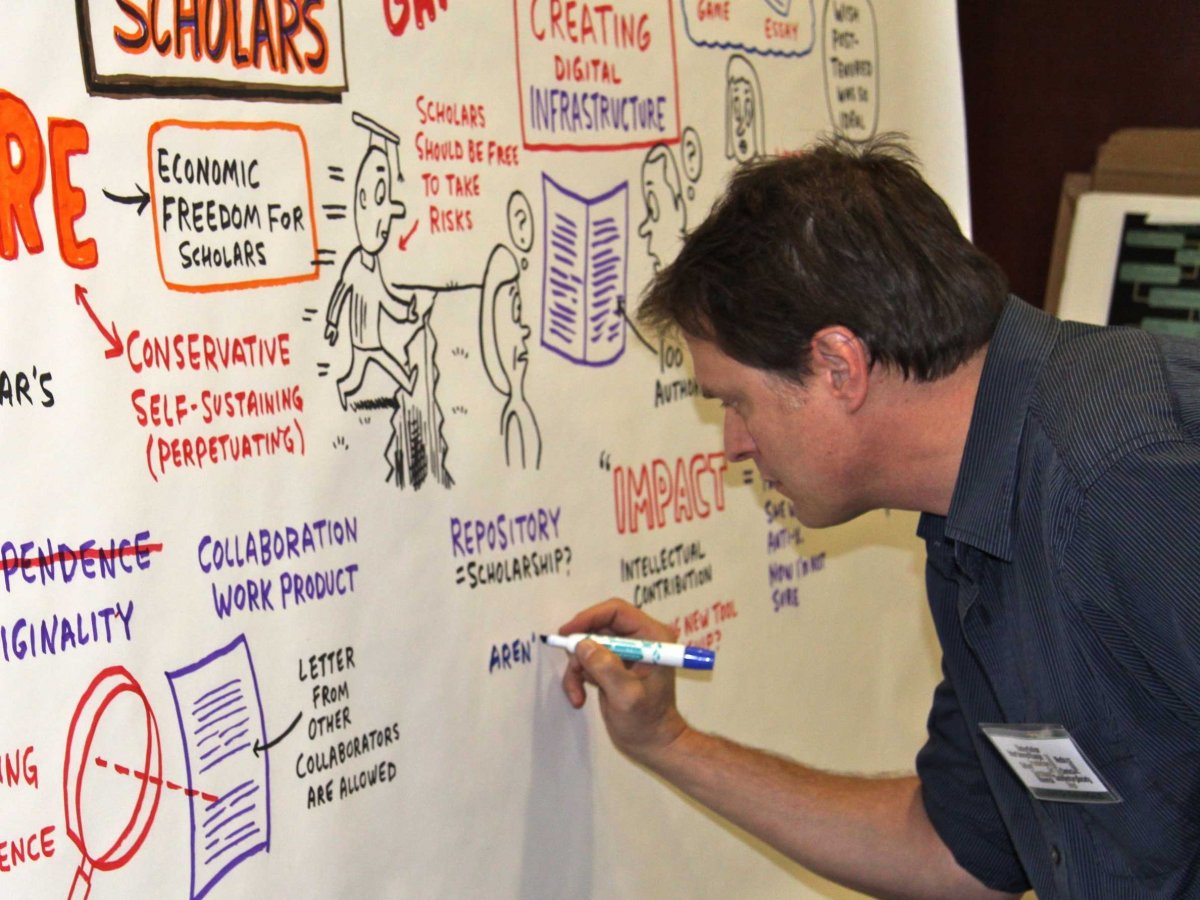 SCHOLARS
GAP
CREATING
DIGITAL
INFRASTRUCTURE
GAME
ESSAY
WISH
POST-
TENURED
WAS SO
IDEAL
RE
ECONOMIC
FREEDOM FOR
SCHOLARS
SCHOLARS
SHOULD BE FREE
TO TAKE
RISKS
?
?
100
AUTHO
CONSERVATIVE
SELF-SUSTAINING
(PERPETUATING)
AR'S
"IMPACT
=
SHE W
ANTI-
NOW I'M NOT
SURE
PENDENCE
IGINALITY
COLLABORATION
WORK PRODUCT
REPOSITORY
=SCHOLARSHIP?
INTELLECTUAL
CONTRIBUTION
NG NEW TOOL
SHIP?
AREN'
LETTER
FROM
OTHER
COLLABORATORS
ARE ALLOWED
ING
ENCE